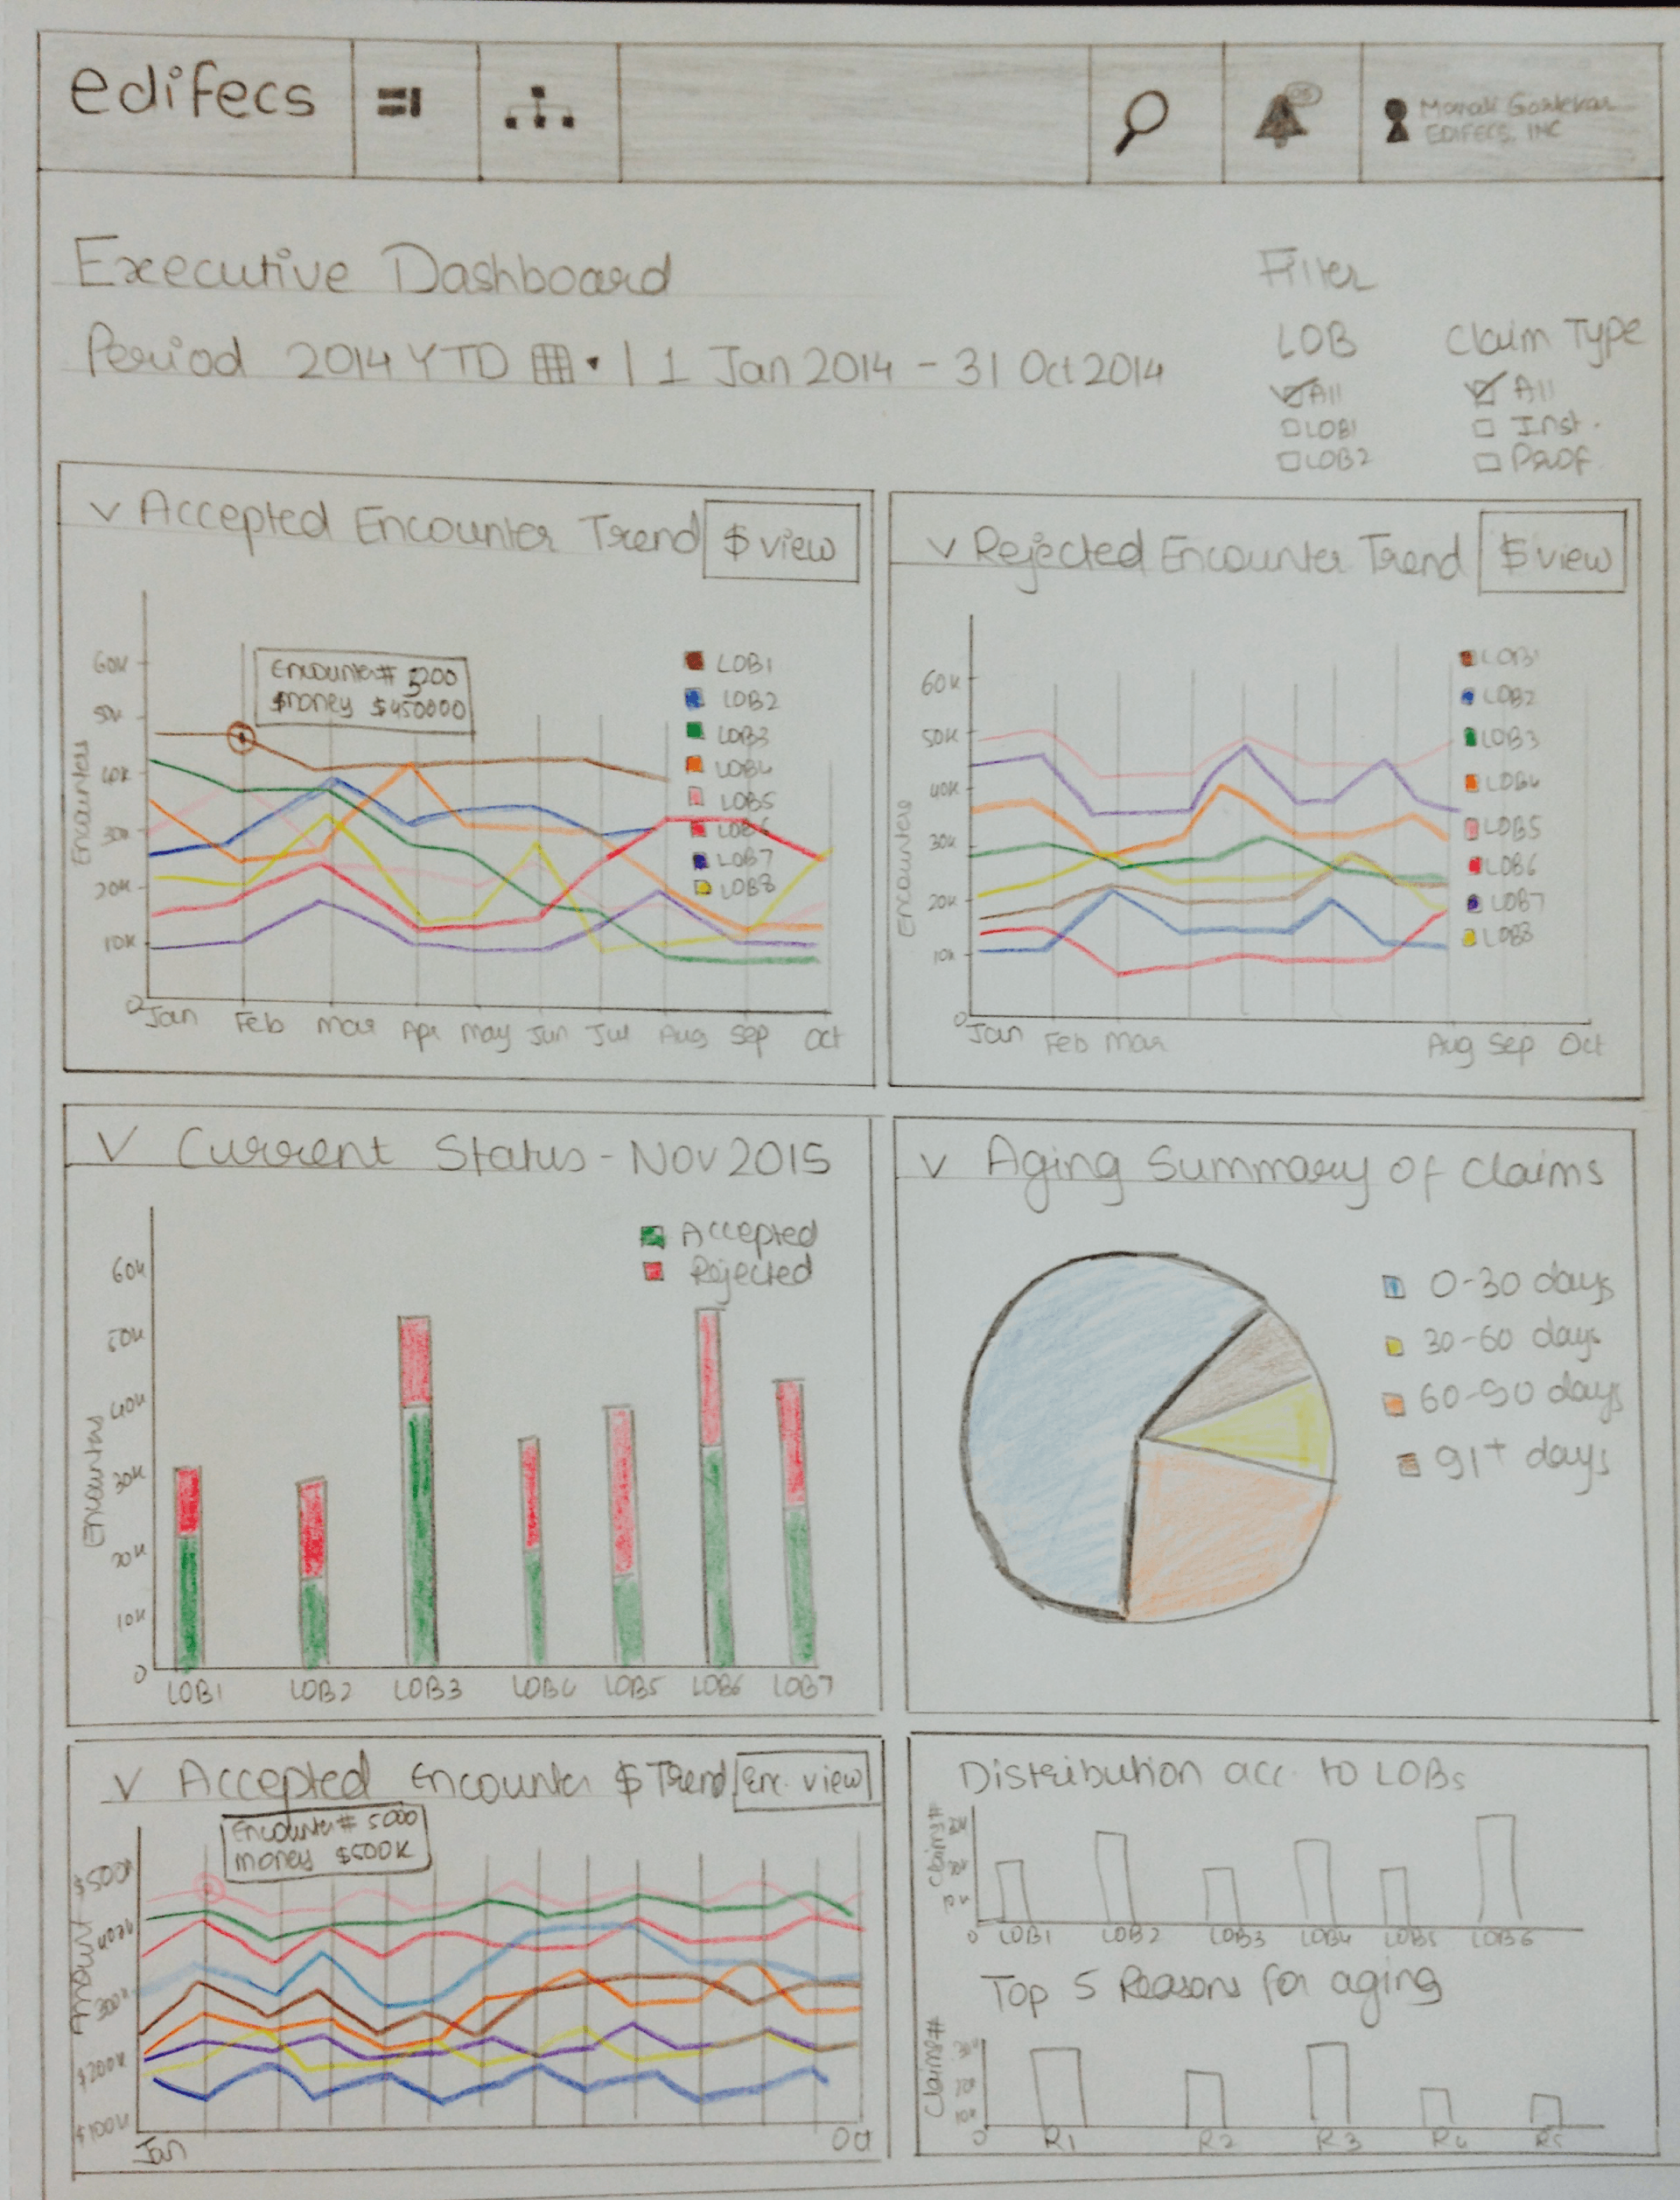 edifecs
EDIFECS, INC
Executive Dashboard
Period 2014 YTD | 1 Jan 2014 - 31 Oct 2014
Filter
LOB Claim Type
All All
LOB1 Inst.
LOB2 Prof.
v Accepted Encounter Trend $ view
Encounter# 5200
$money $450000
60K
50K
40K
30K
20K
10K
0
Encounters
LOB1
LOB2
LOB3
LOB4
LOB5
LOB6
LOB7
LOB8
Jan Feb Mar Apr May Jun Jul Aug Sep Oct
v Rejected Encounter Trend $ view
60K
50K
40K
30K
20K
10K
0
Encounters
LOB1
LOB2
LOB3
LOB4
LOB5
LOB6
LOB7
LOB8
Jan Feb Mar Aug Sep Oct
v Current Status - Nov 2015
Accepted
Rejected
60K
50K
40K
30K
20K
10K
0
Encounters
LOB1 LOB2 LOB3 LOB4 LOB5 LOB6 LOB7
v Aging Summary of Claims
0-30 days
30-60 days
60-90 days
91+ days
v Accepted Encounter $ Trend Enc. view
Encounter# 5000
money $500K
$500K
400K
300K
$200K
$100K
Amount
Jan Oct
Distribution acc. to LOBs
Claims#
10K
0
LOB1 LOB2 LOB3 LOB4 LOB5 LOB6
Top 5 Reasons for aging
Claims#
10K
0
R1 R2 R3 R4 R5